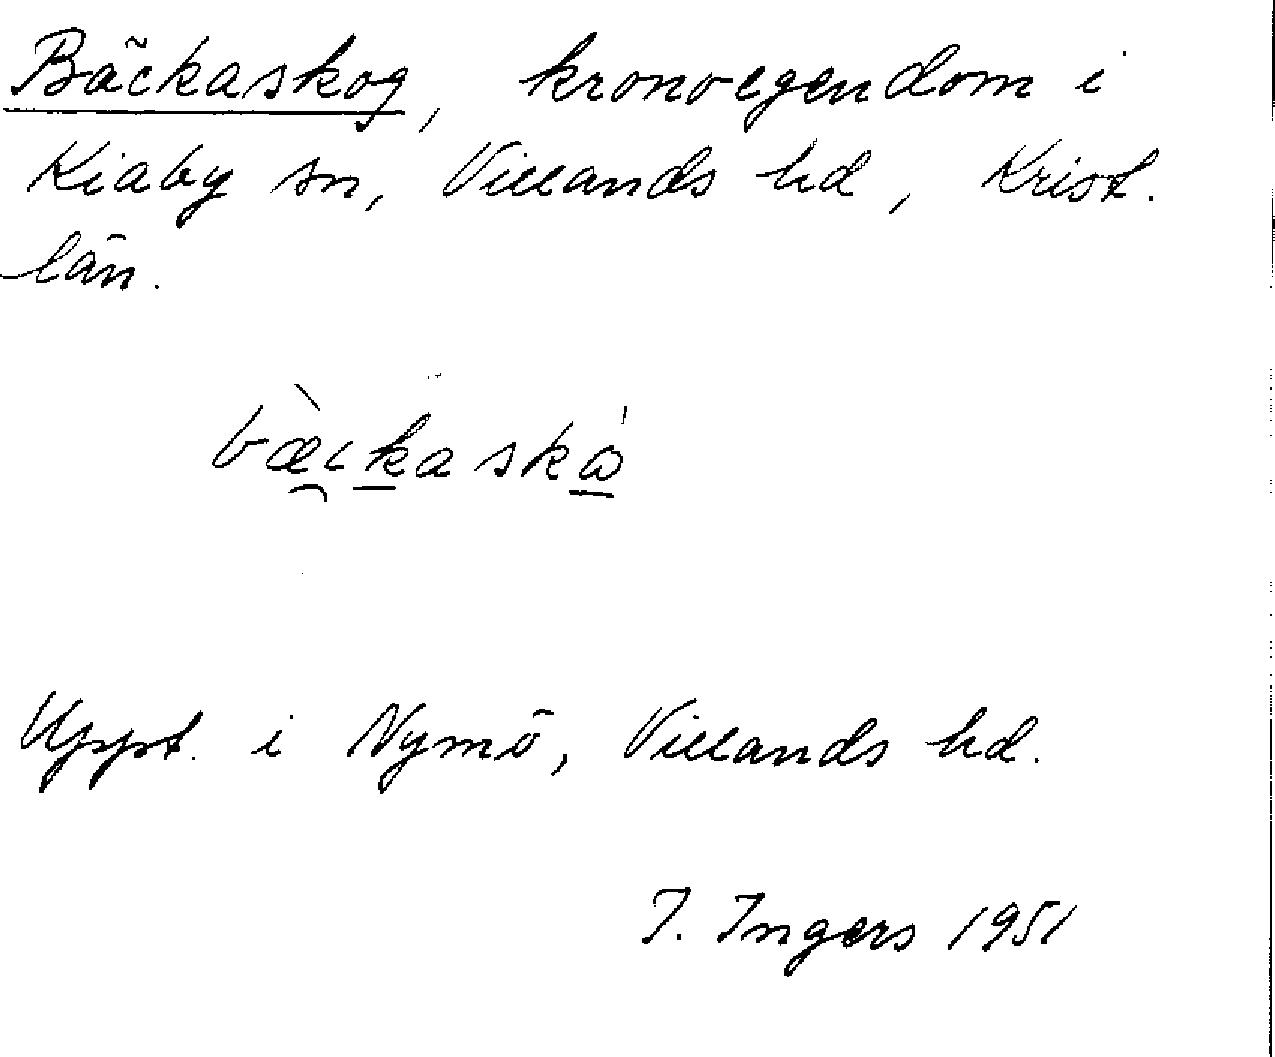 Bäckaskog, kronoegendom i
Kiaby sn, Villands hd, Krist.
län.
bæ̀ckaskò
Uppt. i Nymö, Villands hd.
I. Ingers 1951